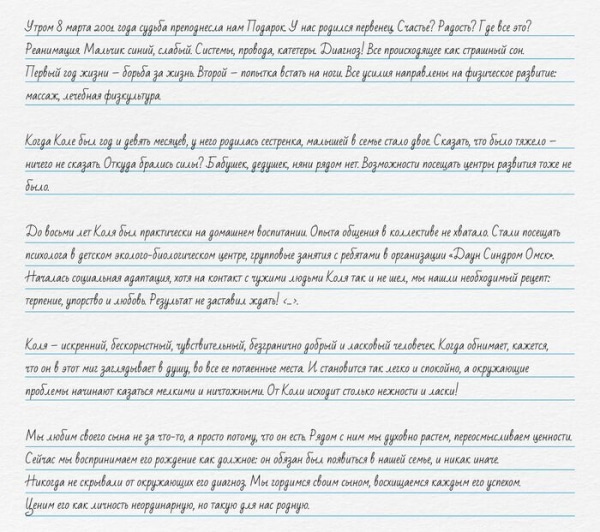 Утром 8 марта 2001 года судьба преподнесла нам Подарок. У нас родился первенец. Счастье? Радость? Где все это?
Реанимация. Мальчик синий, слабый. Системы, провода, катетеры. Диагноз! Все происходящее как страшный сон.
Первый год жизни – борьба за жизнь. Второй – попытка встать на ноги. Все усилия направлены на физическое развитие:
массаж, лечебная физкультура.
Когда Коле был год и девять месяцев, у него родилась сестренка, малышей в семье стало двое. Сказать, что было тяжело –
ничего не сказать. Откуда брались силы? Бабушек, дедушек, няни рядом нет. Возможности посещать центры развития тоже не
было.
До восьми лет Коля был практически на домашнем воспитании. Опыта общения в коллективе не хватало. Стали посещать
психолога в детском эколого-биологическом центре, групповые занятия с ребятами в организации «Даун Синдром Омск».
Началась социальная адаптация, хотя на контакт с чужими людьми Коля так и не шел, мы нашли необходимый рецепт:
терпение, упорство и любовь. Результат не заставил ждать! <…>.
Коля – искренний, бескорыстный, чувствительный, безгранично добрый и ласковый человечек. Когда обнимает, кажется,
что он в этот миг заглядывает в душу, во все ее потаенные места. И становится так легко и спокойно, а окружающие
проблемы начинают казаться мелкими и ничтожными. От Коли исходит столько нежности и ласки!
Мы любим своего сына не за что-то, а просто потому, что он есть. Рядом с ним мы духовно растем, переосмысливаем ценности.
Сейчас мы воспринимаем его рождение как должное: он обязан был появиться в нашей семье, и никак иначе.
Никогда не скрывали от окружающих его диагноз. Мы гордимся своим сыном, восхищаемся каждым его успехом.
Ценим его как личность неординарную, но такую для нас родную.